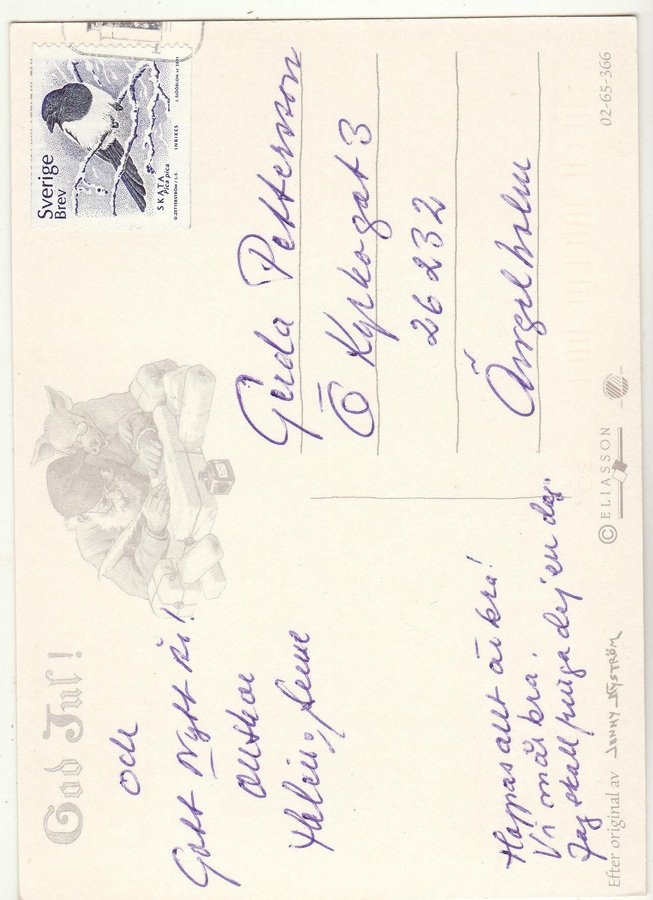 God Jul!
och
Gott Nytt År!
önskar
Hoppas allt är bra!
Vi mår bra.
Jag skall ringa dej en dag.
Efter original av JENNY NYSTRÖM
© ELIASSON
02-65-366
Sverige
Brev
SKATA
Pica pica
INRIKES
Gerda Pettersson
Ö Kyrkogat 3
26232
Ängelholm